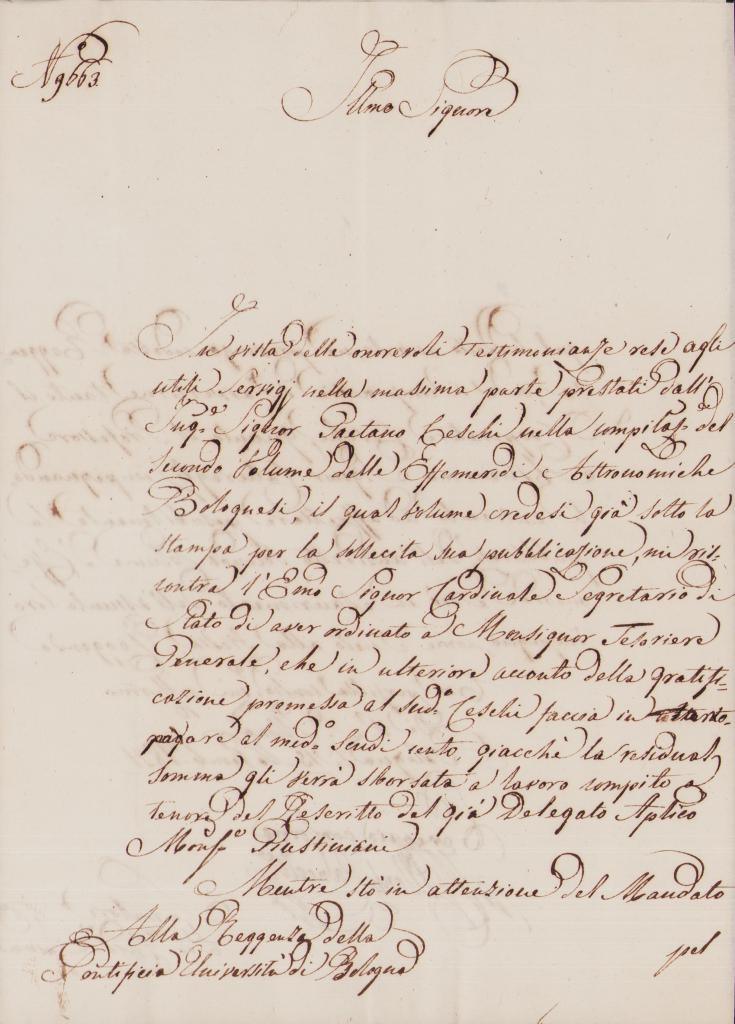 N 9663.
Illmo Signore
In vista delle onorevoli testimonianze rese agli
utili servigj nella massima parte prestati dall'
Ing.e Signor Gaetano Ceschi nella compilaz.e del
secondo Volume delle Effemeridi Astronomiche
Bolognesi, il qual volume credesi già sotto la
stampa per la sollecita sua pubblicazione, mi ris-
contra l'Emo Signor Cardinale Segretario di
Stato di aver ordinato a Monsignor Tesoriere
Generale, che in ulteriore acconto della gratifi-
cazione promessa al sud.o Ceschi faccia in
pagare al med.o Scudi cento, giacchè la residual
somma gli verrà sborsata a lavoro compito a
tenore del Rescritto del già Delegato Aplico
Monsr. Giustiniani
Mentre stò in attenzione del Mandato
pel
Alla Reggenza della
Pontificia Università di Bologna